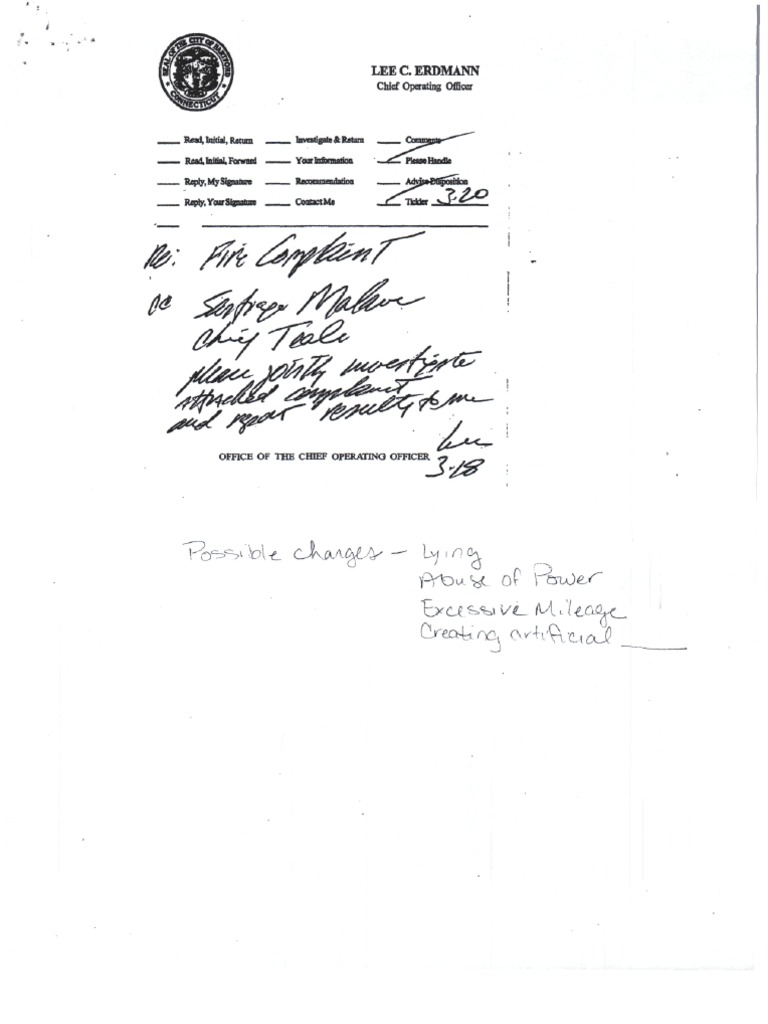 SEAL OF THE CITY OF HARTFORD
CONNECTICUT
LEE C. ERDMANN
Chief Operating Officer
Read, Initial, Return Investigate & Return Comments
Read, Initial, Forward Your Information Please Handle
Reply, My Signature Recommendation Advise Disposition
Reply, Your Signature Contact Me Tickler 3-20
Re: Fire Complaint
Santiago Malave
Chief Teale
please jointly investigate
attached complaint
and report results to me
Lee
OFFICE OF THE CHIEF OPERATING OFFICER 3-18
Possible charges - Lying
Abuse of Power
Excessive Mileage
Creating artificial ____